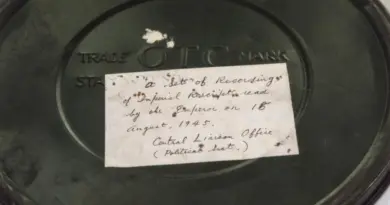 TRADE OTC MARK
STA
A set of Recordings
of Imperial Rescript read
by the Emperor on 15
August, 1945.
Central Liaison Office
(Political Sect.)